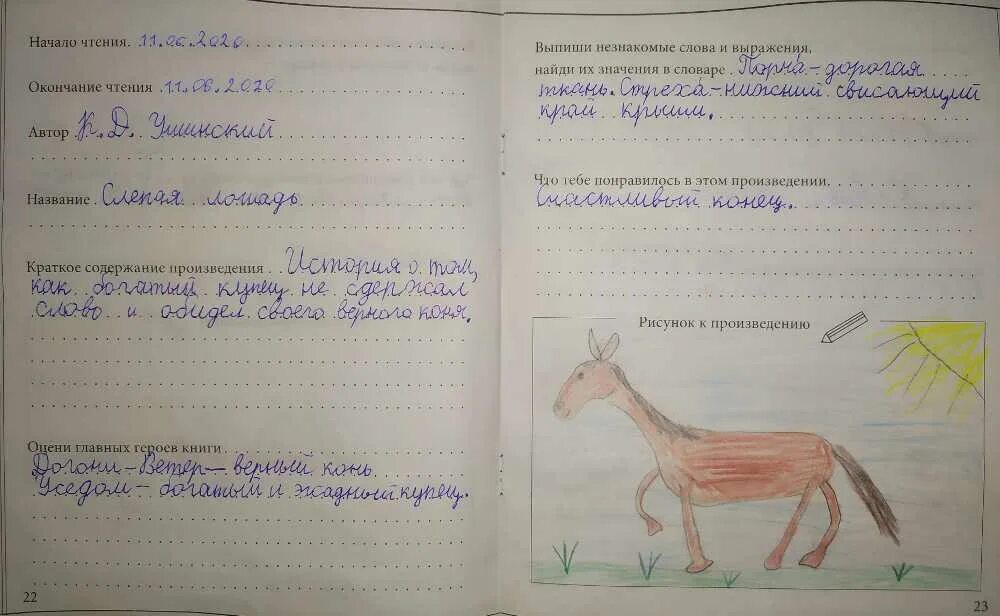 Начало чтения 11.06.2020
Окончание чтения 11.06.2020
Автор К. Д. Ушинский
Название Слепая лошадь
Краткое содержание произведения История о том,
как богатый купец не сдержал
слово и обидел своего верного коня.
Оцени главных героев книги
Догони-Ветер – верный конь.
Уседом – богатый и жадный купец.
22
Выпиши незнакомые слова и выражения,
найди их значения в словаре Порча – дорогая
ткань. Стреха – нижний свисающий
край крыши.
Что тебе понравилось в этом произведении
Счастливый конец.
Рисунок к произведению
23